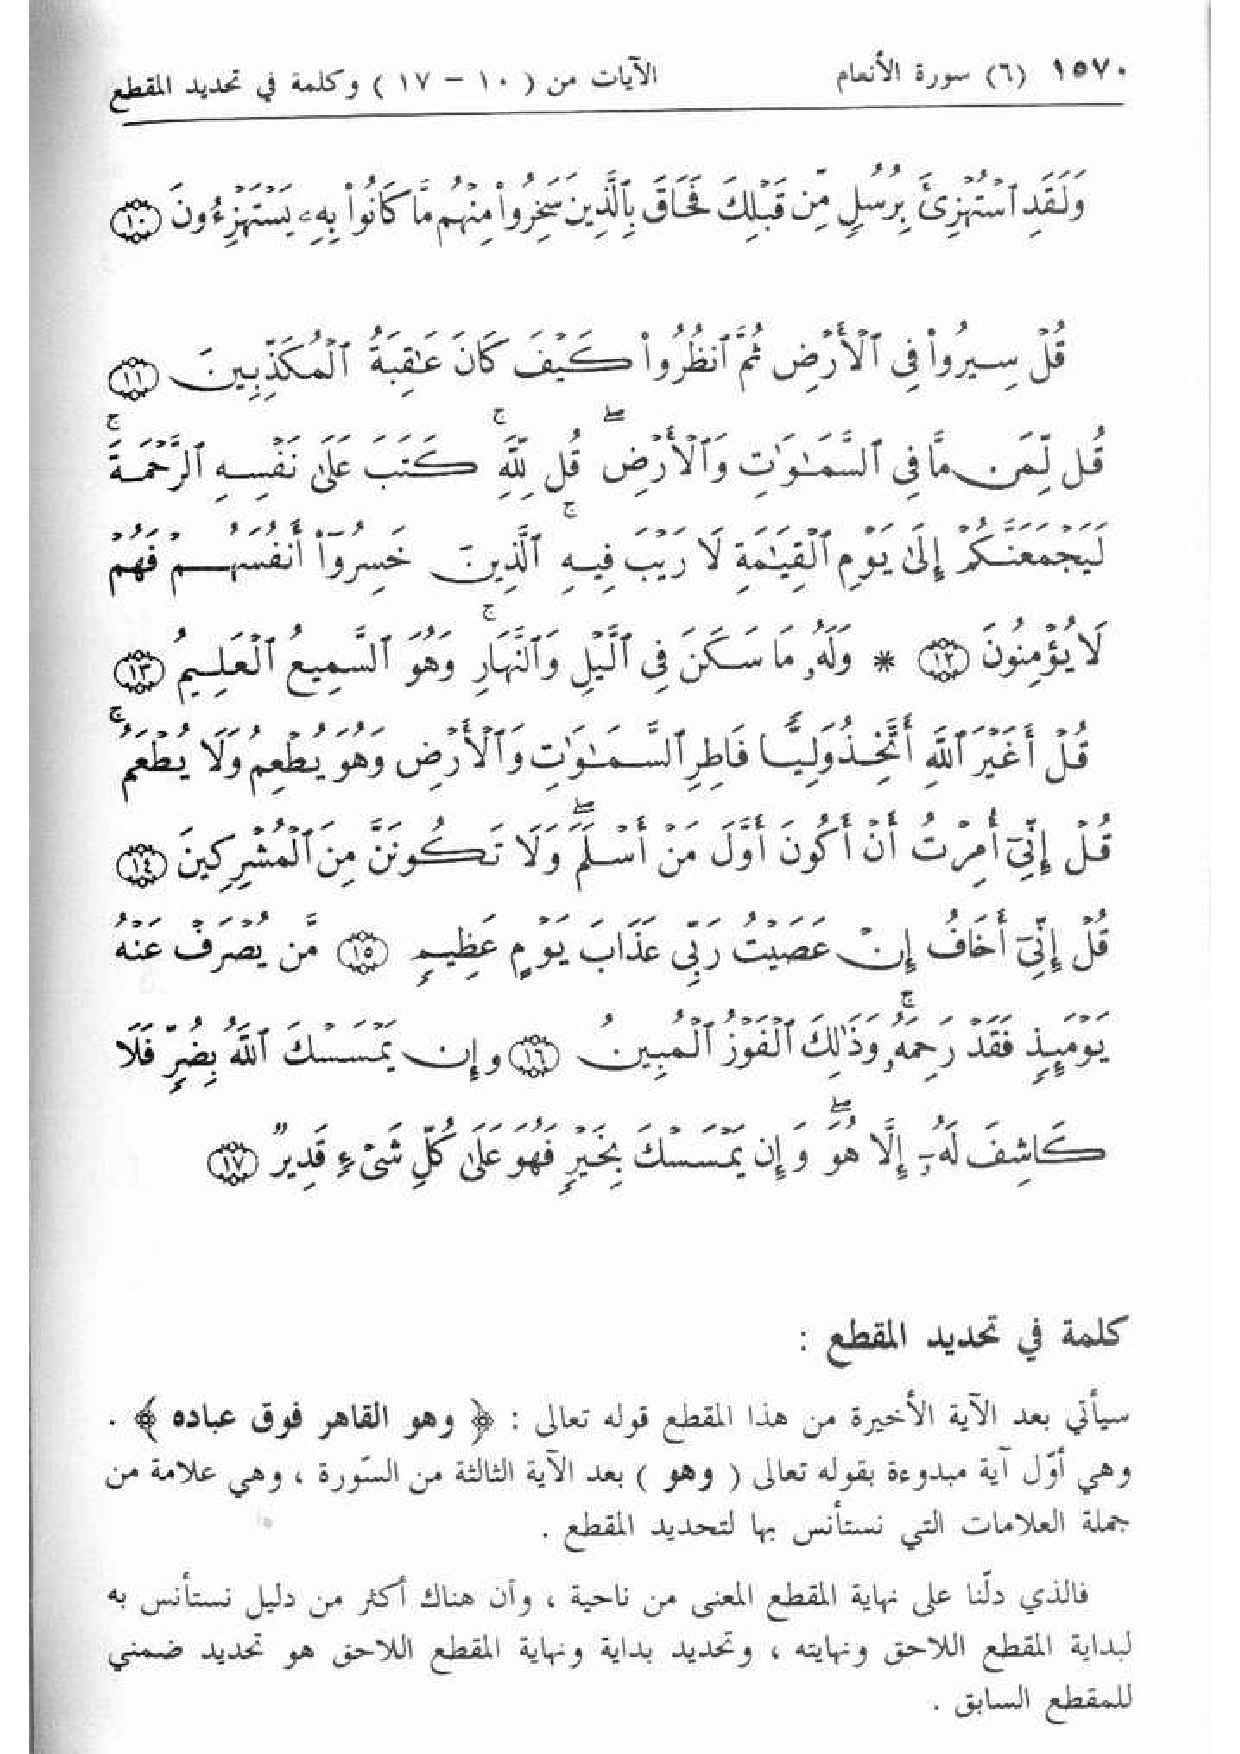 ١٥٧٠ (٦) سورة الأنعام الآيات من ( ١٠ - ١٧ ) وكلمة في تحديد المقطع
وَلَقَدِ ٱسْتُهْزِئَ بِرُسُلٍ مِّن قَبْلِكَ فَحَاقَ بِٱلَّذِينَ سَخِرُوا۟ مِنْهُم مَّا كَانُوا۟ بِهِۦ يَسْتَهْزِءُونَ ١٠
قُلْ سِيرُوا۟ فِى ٱلْأَرْضِ ثُمَّ ٱنظُرُوا۟ كَيْفَ كَانَ عَـٰقِبَةُ ٱلْمُكَذِّبِينَ ١١
قُل لِّمَن مَّا فِى ٱلسَّمَـٰوَٰتِ وَٱلْأَرْضِ ۖ قُل لِلَّهِ ۚ كَتَبَ عَلَىٰ نَفْسِهِ ٱلرَّحْمَةَ ۚ
لَيَجْمَعَنَّكُمْ إِلَىٰ يَوْمِ ٱلْقِيَـٰمَةِ لَا رَيْبَ فِيهِ ۚ ٱلَّذِينَ خَسِرُوٓا۟ أَنفُسَهُمْ فَهُمْ
لَا يُؤْمِنُونَ ١٢ * وَلَهُۥ مَا سَكَنَ فِى ٱلَّيْلِ وَٱلنَّهَارِ ۚ وَهُوَ ٱلسَّمِيعُ ٱلْعَلِيمُ ١٣
قُلْ أَغَيْرَ ٱللَّهِ أَتَّخِذُ وَلِيًّا فَاطِرِ ٱلسَّمَـٰوَٰتِ وَٱلْأَرْضِ وَهُوَ يُطْعِمُ وَلَا يُطْعَمُ ۚ
قُلْ إِنِّىٓ أُمِرْتُ أَنْ أَكُونَ أَوَّلَ مَنْ أَسْلَمَ ۖ وَلَا تَكُونَنَّ مِنَ ٱلْمُشْرِكِينَ ١٤
قُلْ إِنِّىٓ أَخَافُ إِنْ عَصَيْتُ رَبِّى عَذَابَ يَوْمٍ عَظِيمٍ ١٥ مَّن يُصْرَفْ عَنْهُ
يَوْمَئِذٍ فَقَدْ رَحِمَهُۥ ۚ وَذَٰلِكَ ٱلْفَوْزُ ٱلْمُبِينُ ١٦ وَإِن يَمْسَسْكَ ٱللَّهُ بِضُرٍّ فَلَا
كَاشِفَ لَهُۥٓ إِلَّا هُوَ ۖ وَإِن يَمْسَسْكَ بِخَيْرٍ فَهُوَ عَلَىٰ كُلِّ شَىْءٍ قَدِيرٌ ١٧
كلمة في تحديد المقطع :
سيأتي بعد الآية الأخيرة من هذا المقطع قوله تعالى : ﴿ وهو القاهر فوق عباده ﴾ .
وهي أوّل آية مبدوءة بقوله تعالى ( وهو ) بعد الآية الثالثة من السّورة ، وهي علامة من
جملة العلامات التي نستأنس بها لتحديد المقطع .
فالذي دلّنا على نهاية المقطع المعنى من ناحية ، وأن هناك أكثر من دليل نستأنس به
لبداية المقطع اللاحق ونهايته ، وتحديد بداية ونهاية المقطع اللاحق هو تحديد ضمني
للمقطع السابق .